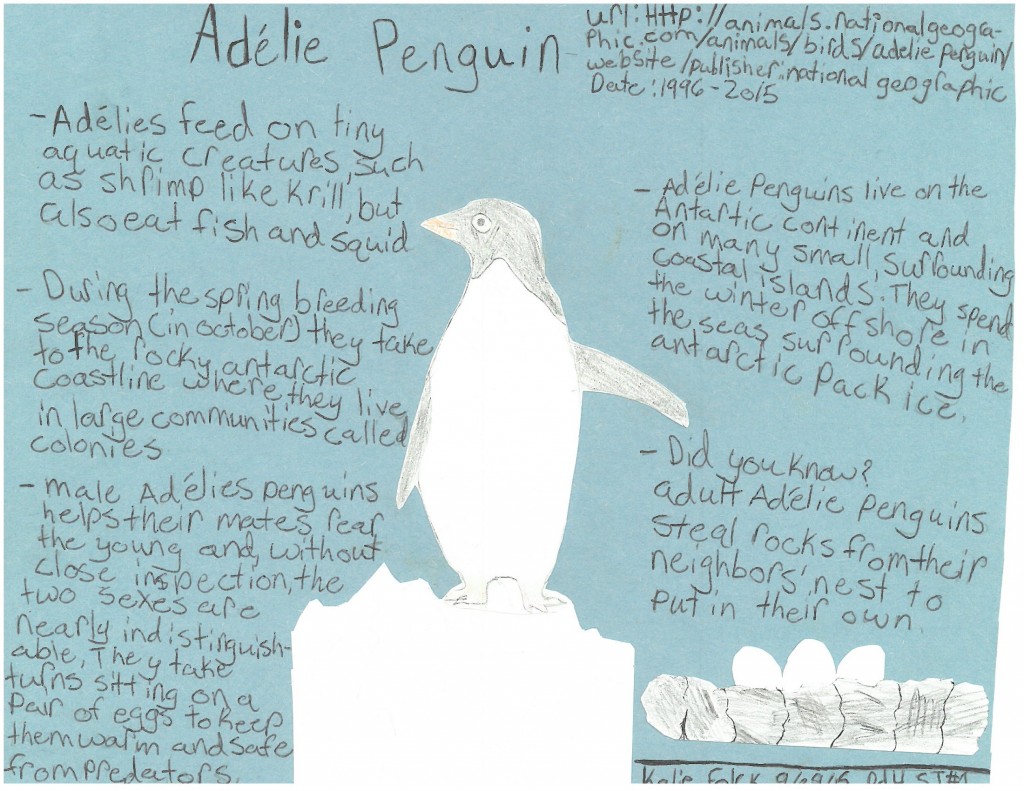 Adélie Penguin
url: Http://animals.nationalgeogra-
phic.com/animals/birds/adelie penguin/
website/publisher: national geographic
Date: 1996-2015
- Adélies feed on tiny
aquatic creatures, such
as shrimp like krill, but
also eat fish and squid
- During the spring breeding
season (in october) they take
to the rocky antarctic
coastline where they live
in large communities called
colonies
- male Adélies penguins
helps their mates rear
the young and, without
close inspection, the
two sexes are
nearly indistinguish-
able. They take
turns sitting on a
pair of eggs to keep
them warm and safe
from predators.
- Adélie Penguins live on the
Antartic continent and
on many small, surrounding
coastal islands. They spend
the winter offshore in
the seas surrounding the
antarctic pack ice.
- Did you know?
adult Adélie Penguins
steal rocks from their
neighbors' nest to
put in their own.
Katie